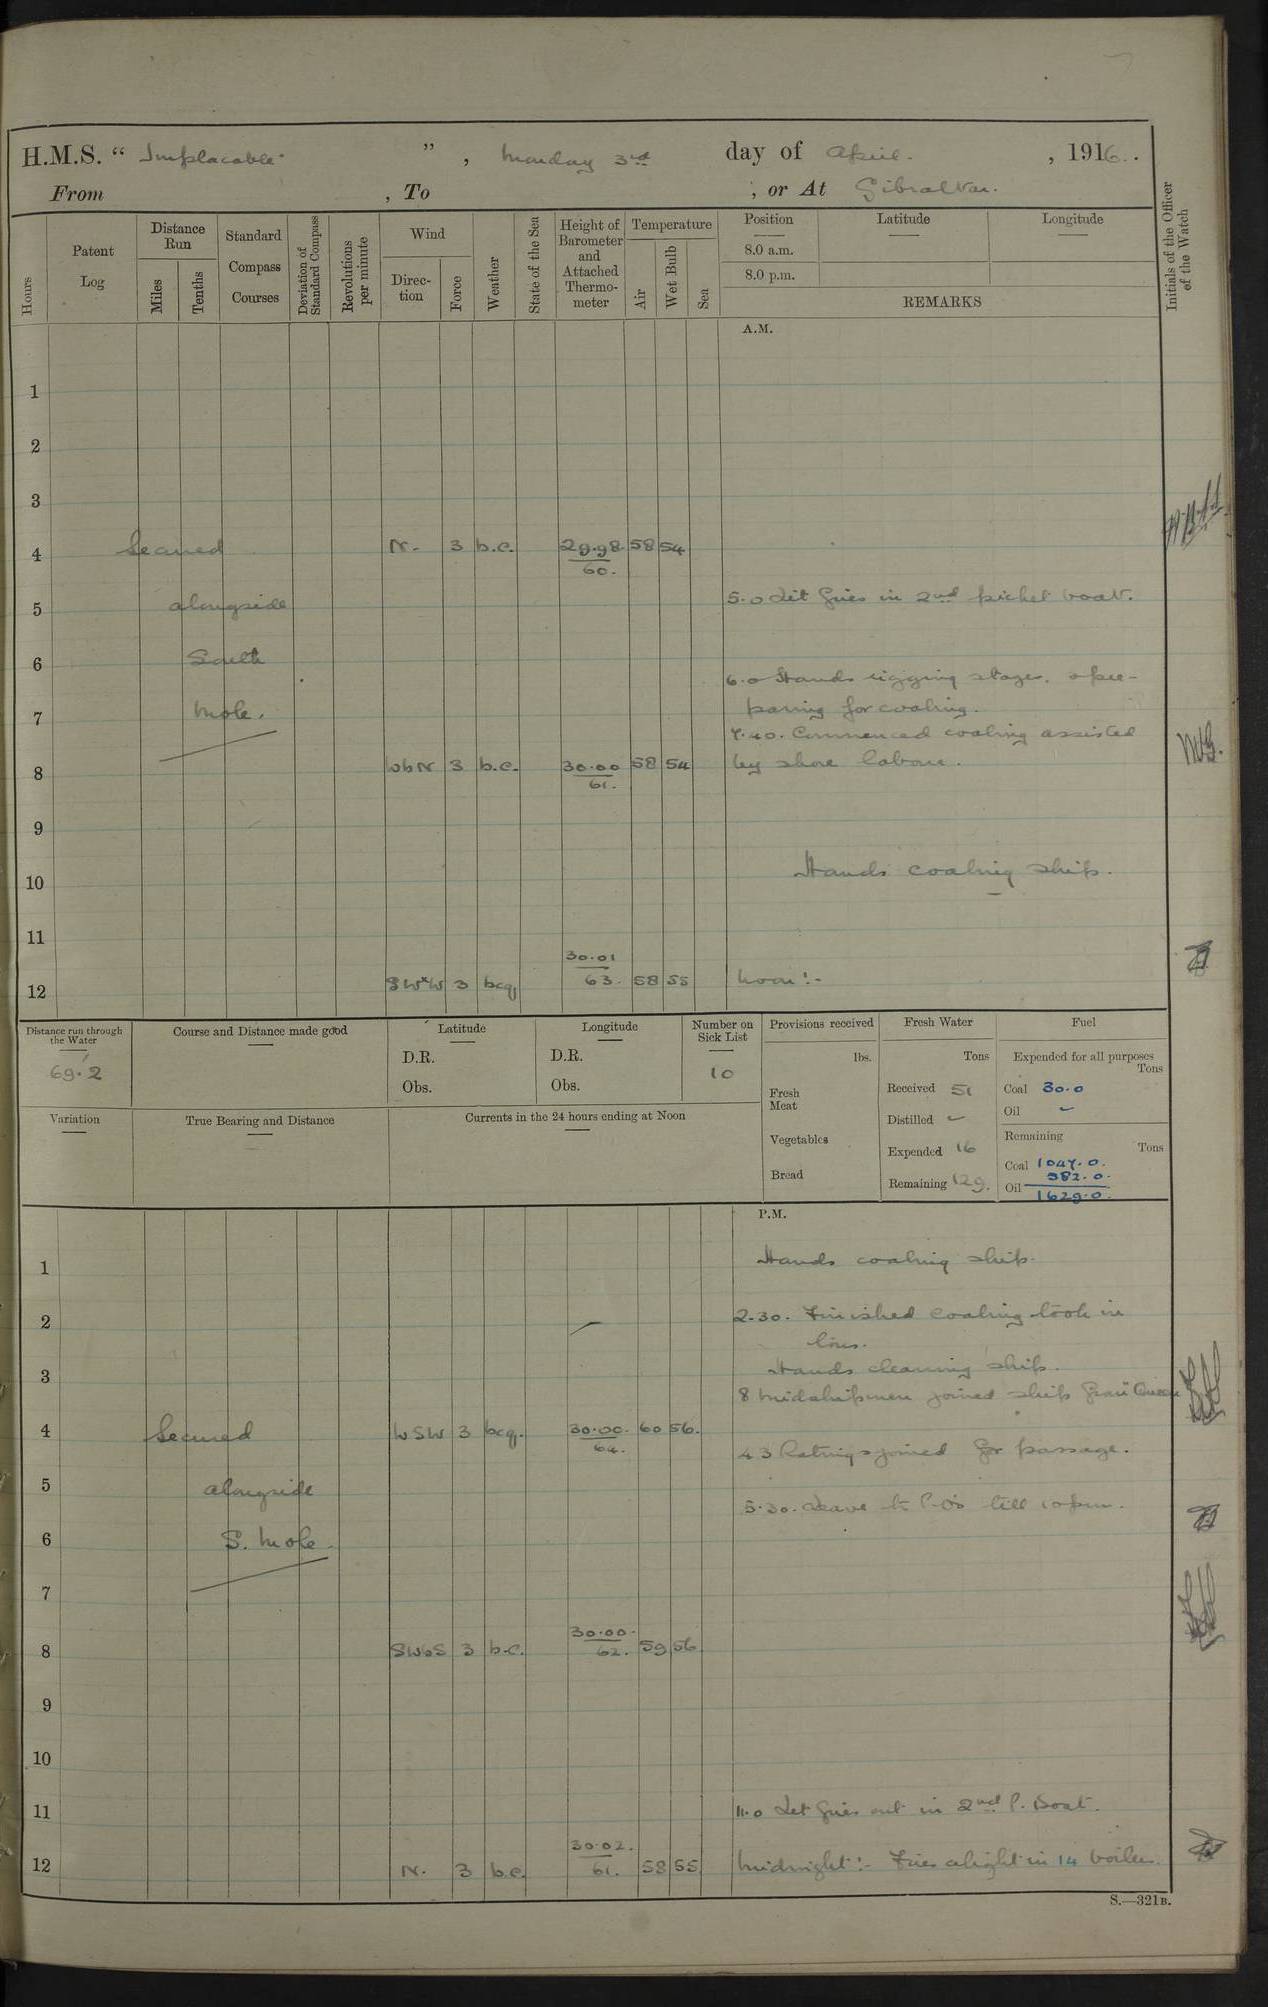 H.M.S. “ Implacable ” , Monday 3rd day of April. , 1916.
From , To , or At Gibraltar.
Hours
Patent Log
Distance Run
Miles
Tenths
Standard Compass Courses
Deviation of Standard Compass
Revolutions per minute
Wind
Direc-tion
Force
Weather
State of the Sea
Height of Barometer and Attached Thermo-meter
Temperature
Air
Wet Bulb
Sea
Position Latitude Longitude
8.0 a.m.
8.0 p.m.
REMARKS
Initials of the Officer of the Watch
A.M.
1
2
3
4 Secured N. 3 b.c. 29.98 58 54
60.
5 alongside 5.0 Lit fires in 2nd picket boat.
6 South
6.0 Hands rigging stages, & pre-
7 Mole. paring for coaling.
7.40. Commenced coaling assisted
8 WbN 3 b.c. 30.00 58 54 by shore labour.
61.
9
10 Hands coaling ship.
11
30.01
12 SWxW 3 bcq 63. 58 55 Noon:-
Distance run through the Water
69.2
Course and Distance made good
Latitude
D.R.
Obs.
Longitude
D.R.
Obs.
Number on Sick List
10
Provisions received
lbs.
Fresh Meat
Vegetables
Bread
Fresh Water
Tons
Received 51
Distilled
Expended 16
Remaining 129.
Fuel
Expended for all purposes
Tons
Coal 30.0
Oil
Remaining
Tons
Coal 1047.0.
582.0.
Oil 1629.0.
Variation
True Bearing and Distance
Currents in the 24 hours ending at Noon
P.M.
1 Hands coaling ship.
2 2.30. Finished coaling took in
lines.
3 Hands cleaning ship.
8 Midshipmen joined ship from "Queen
4 Secured WSW 3 bcq. 30.00. 60 56.
64. 43 Ratings joined for passage.
5 alongside
5.30. Leave to P.O's till 10pm.
6 S. Mole.
7
30.00.
8 SWbS 3 b.c. 62. 59 56
9
10
11 11.0 Let fires out in 2nd P. Boat.
30.02.
12 N. 3 b.c. 61. 58 55 Midnight:- Fires alight in 14 boilers.
S.—321B.